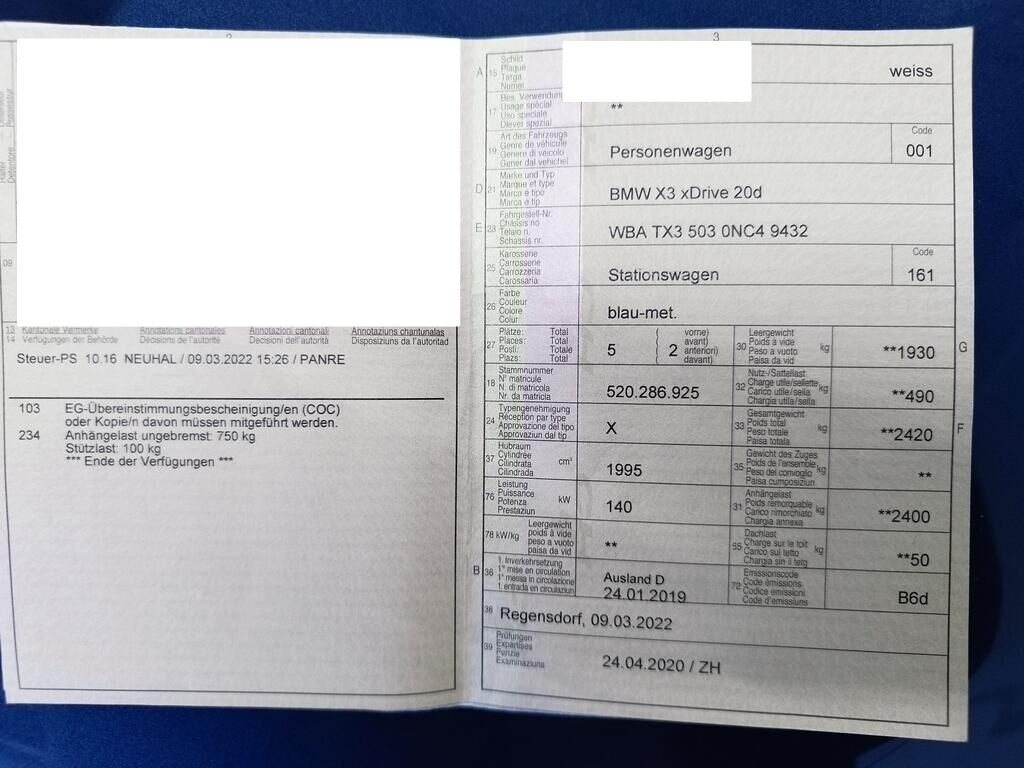 2
09
13 Kantonale Vermerke Annotations cantonales Annotazioni cantonali Annotaziuns chantunalas
14 Verfügungen der Behörde Décisions de l'autorité Decisioni dell'autorità Disposiziuns da l'autoritad
Steuer-PS 10.16 NEUHAL / 09.03.2022 15:26 / PANRE
103 EG-Übereinstimmungsbescheinigung/en (COC)
oder Kopie/n davon müssen mitgeführt werden.
234 Anhängelast ungebremst: 750 kg
Stützlast: 100 kg
*** Ende der Verfügungen ***
3
A 15 Schild
Plaque
Targa
Numer
weiss
17 Bes. Verwendung
Usage spécial
Uso speciale
Diever spezial
**
19 Art des Fahrzeugs
Genre de véhicule
Genere di veicolo
Gener dal vehichel
Personenwagen
Code
001
D 21 Marke und Typ
Marque et type
Marca e tipo
Marca e tip
BMW X3 xDrive 20d
E 23 Fahrgestell-Nr.
Châssis no
Telaio n.
Schassis nr.
WBA TX3 503 0NC4 9432
25 Karosserie
Carrosserie
Carrozzeria
Carossaria
Stationswagen
Code
161
26 Farbe
Couleur
Colore
Colur
blau-met.
27 Plätze: Total
Places: Total
Posti: Totale
Plazs: Total
5 ( 2 vorne)
avant)
anteriori)
davant)
30 Leergewicht
Poids à vide
Peso a vuoto
Paisa da vid
kg
**1930
G
18 Stammnummer
N° matricule
N. di matricola
Nr. da matricla
520.286.925
32 Nutz-/Sattellast
Charge utile/sellette
Carico utile/sella
Chargia utila/sella
kg
**490
24 Typengenehmigung
Réception par type
Approvazione del tipo
Approvaziun dal tip
X
33 Gesamtgewicht
Poids total
Peso totale
Paisa totala
kg
**2420
F
37 Hubraum
Cylindrée
Cilindrata
Cilindrada
cm³
1995
35 Gewicht des Zuges
Poids de l'ensemble
Peso del convoglio
Paisa cumposiziun
kg
**
76 Leistung
Puissance
Potenza
Prestaziun
kW
140
31 Anhängelast
Poids remorquable
Carico rimorchiato
Chargia annexa
kg
**2400
78 kW/kg Leergewicht
poids à vide
peso a vuoto
paisa da vid
**
55 Dachlast
Charge sur le toit
Carico sul tetto
Chargia sin il tetg
kg
**50
B 36 1. Inverkehrsetzung
1re mise en circulation
1a messa in circolazione
1. entrada en circulaziun
Ausland D
24.01.2019
72 Emissionscode
Code émissions
Codice emissioni
Code d'emissiuns
B6d
38 Regensdorf, 09.03.2022
39 Prüfungen
Expertises
Perizie
Examinaziuns
24.04.2020 / ZH